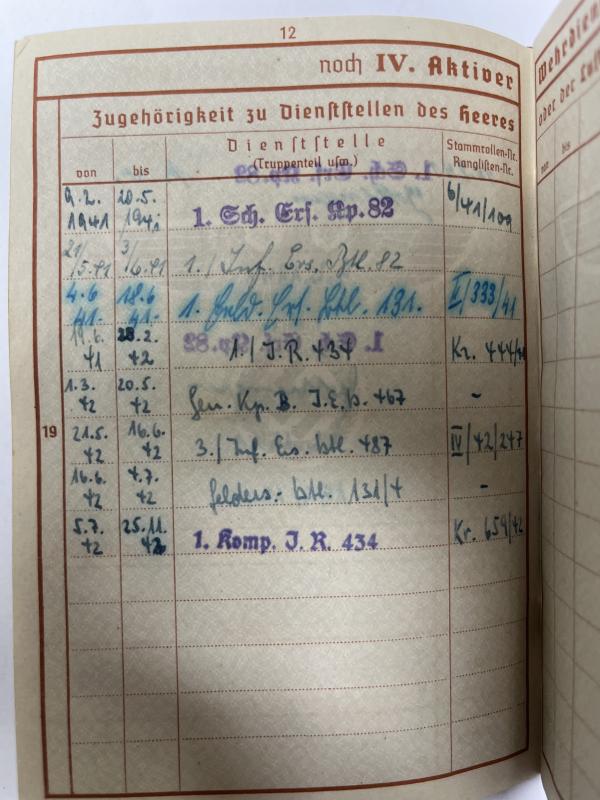 12
noch IV. Aktiver
Zugehörigkeit zu Dienststellen des Heeres
von bis Dienststelle (Truppenteil usw.) Stammrollen-Nr. Ranglisten-Nr.
9.2. 1941 20.5. 1941 1. Sch. Ers. Kp. 82 6/41/109
21/5.41 3/6.41 1./Inf. Ers. Btl. 82
4.6 41. 18.6 41. 1. Feld. Ers. Btl. 131. I/333/41
19.6. 41 28.2. 42 1./I.R. 434 Kr. 444/41
1.3. 42 20.5. 42 Gen. Kp. B. I.E.b. 467 -
19 21.5. 42 16.6. 42 3./Inf. Ers. btl. 487 IV/42/247
16.6. 42 4.7. 42 felders.- btl. 131/4 -
5.7. 42 25.11. 42 1. Komp. I. R. 434 Kr. 654/42
Wehrdien
oder der Luf
von bis